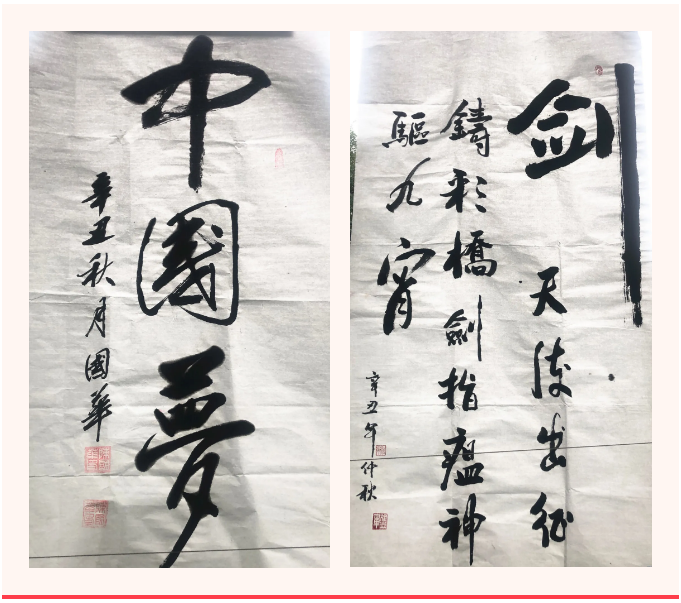 中國夢
辛丑秋月國華
劍
天使出征
鑄彩橋劍指瘟神
驅九霄
辛丑年仲秋